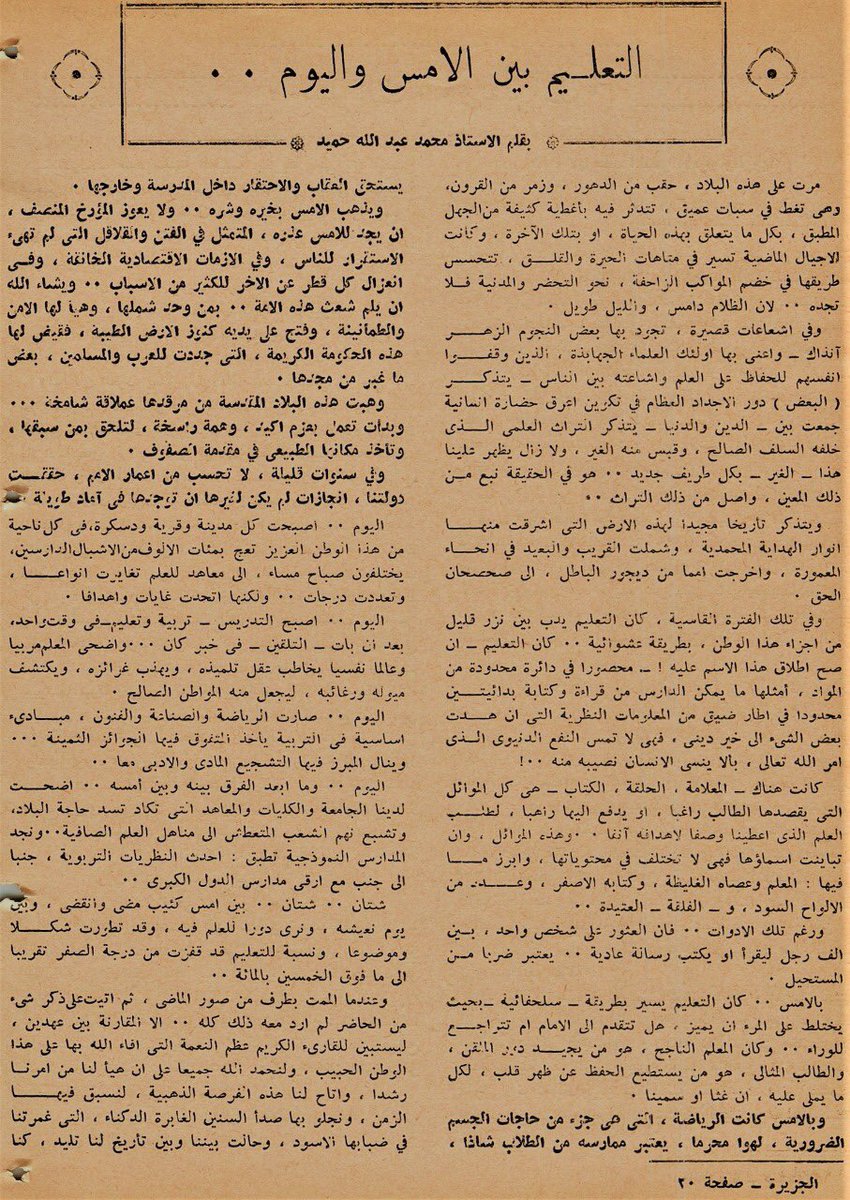 التعليم بين الامس واليوم ٠٠
بقلم الاستاذ محمد عبد الله حميد
مرت على هذه البلاد ، حقب من الدهور ، وزمر من القرون،
وهى تغط في سبات عميق ، تتدثر فيه بأغطية كثيفة من الجهل
المطبق ، بكل ما يتعلق بهذه الحياة ، او بتلك الآخرة ، وكانت
الاجيال الماضية تسير في متاهات الحيرة والقلق ، تتحسس
طريقها في خضم المواكب الزاحفة ، نحو التحضر والمدنية فلا
تجده ٠٠ لان الظلام دامس ، والليل طويل ٠
وفي اشعاعات قصيرة ، تجود بها بعض النجوم الزهر
آنذاك ـ واعنى بها اولئك العلماء الجهابذة ، الذين وقفوا
انفسهم للحفاظ على العلم واشاعته بين الناس ـ يتذكر
( البعض ) دور الاجداد العظام في تكوين اعرق حضارة انسانية
جمعت بين ـ الدين والدنيا ـ يتذكر التراث العلمى الذى
خلفه السلف الصالح ، وقبس منه الغير ، ولا زال يظهر علينا
هذا ـ الغير ـ بكل طريف جديد ٠٠ هو في الحقيقة نبع من
ذلك المعين ، واصل من ذلك التراث ٠٠
ويتذكر تأريخا مجيدا لهذه الارض التى اشرقت منها
انوار الهداية المحمدية ، وشملت القريب والبعيد في انحاء
المعمورة ، واخرجت امما من ديجور الباطل ، الى صحصحان
الحق ٠
وفي تلك الفترة القاسية ، كان التعليم يدب بين نزر قليل
من اجزاء هذا الوطن ، بطريقة عشوائية ٠٠ كان التعليم ـ ان
صح اطلاق هذا الاسم عليه ! ـ محصورا في دائرة محدودة من
المواد ، أمثلها ما يمكن الدارس من قراءة وكتابة بدائيتين
محدودا في اطار ضيق من المعلومات النظرية التى ان هدت
بعض الشىء الى خير دينى ، فهى لا تمس النفع الدنيوى الذى
امر الله تعالى ، بالا ينسى الانسان نصيبه منه ٠٠!
كانت هناك ـ المعلامة ، الحلقة ، الكتاب ـ هى كل الموائل
التى يقصدها الطالب راغبا ، او يدفع اليها راهبا ، لطلب
العلم الذى اعطينا وصفا لاهدافه آنفا ٠ وهذه الموائل ، وان
تباينت اسماؤها فهى لا تختلف في محتوياتها ، وابرز ما
فيها : المعلم وعصاه الغليظة ، وكتابه الاصفر ، وعدد من
الالواح السود ، و ـ الفلقة ـ العتيدة ٠٠
ورغم تلك الادوات ٠٠ فان العثور على شخص واحد ، بين
الف رجل ليقرأ او يكتب رسالة عادية ٠٠ يعتبر ضربا من
المستحيل ٠
بالامس ٠٠ كان التعليم يسير بطريقة ـ سلحفائية ـ بحيث
يختلط على المرء ان يميز ، هل تتقدم الى الامام ام تتراجع
للوراء ٠٠ وكان المعلم الناجح ، هو من يجيد دور الملقن ،
والطالب المثالى ، هو من يستطيع الحفظ عن ظهر قلب ، لكل
ما يملى عليه ، ان غثا او سمينا ٠
وبالامس كانت الرياضة ، التى هى جزء من حاجات الجسم
الضرورية ، لهوا محرما ، يعتبر ممارسه من الطلاب شاذا ،
يستحق العقاب والاحتقار داخل المدرسة وخارجها ٠
ويذهب الامس بخيره وشره ٠٠ ولا يعوز المؤرخ المنصف ،
ان يجد للامس عذره ، المتمثل في الفتن والقلاقل التى لم تهىء
الاستقرار للناس ، وفي الازمات الاقتصادية الخانقة ، وفى
انعزال كل قطر عن الآخر للكثير من الاسباب ٠٠ ويشاء الله
ان يلم شعث هذه الامة ٠٠ بمن وحد شملها ، وهيأ لها الامن
والطمأنينة ، وفتح على يديه كنوز الارض الطيبة ، فقيض لها
هذه الحكومة الكريمة ، التى جددت للعرب والمسلمين ، بعض
ما غبر من مجدها ٠
وهبت هذه البلاد المقدسة من مرقدها عملاقة شامخة ٠٠٠
وبدأت تعمل بعزم اكيد ، وهمة راسخة ، لتلحق بمن سبقها ،
وتأخذ مكانها الطبيعى في مقدمة الصفوف ٠
وفي سنوات قليلة ، لا تحسب من اعمار الامم ، حققت
دولتنا ، انجازات لم يكن لغيرها ان توجدها في آماد طويلة
اليوم ٠٠ اصبحت كل مدينة وقرية ودسكرة، فى كل ناحية
من هذا الوطن العزيز تعج بمئات الالوف من الاشبال الدارسين،
يختلفون صباح مساء ، الى معاهد للعلم تغايرت انواعا ،
وتعددت درجات ٠٠ ولكنها اتحدت غايات واهدافا ٠
اليوم ٠٠ اصبح التدريس ـ تربية وتعليم ـ فى وقت واحد،
بعد ان بات ـ التلقين ـ فى خبر كان ٠٠٠ واضحى المعلم مربيا
وعالما نفسيا يخاطب عقل تلميذه ، ويهذب غرائزه ، ويكتشف
ميوله ورغائبه ، ليجعل منه المواطن الصالح ٠
اليوم ٠٠ صارت الرياضة والصناعة والفنون ، مبادىء
اساسية فى التربية يأخذ المتفوق فيها الجوائز الثمينة ٠٠٠
وينال المبرز فيها التشجيع المادى والادبى معا ٠٠
اليوم ٠٠ وما ابعد الفرق بينه وبين أمسه ٠٠ اضحت
لدينا الجامعة والكليات والمعاهد التى تكاد تسد حاجة البلاد،
وتشبع نهم الشعب المتعطش الى مناهل العلم الصافية ٠٠ ونجد
المدارس النموذجية تطبق : احدث النظريات التربوية ، جنبا
الى جنب مع ارقى مدارس الدول الكبرى ٠٠
شتان ٠٠ شتان ٠٠ بين امس كئيب مضى وانقضى ، وبين
يوم نعيشه ، ونرى دورا للعلم فيه ، وقد تطورت شكلا
وموضوعا ، ونسبة للتعليم قد قفزت من درجة الصفر تقريبا
الى ما فوق الخمسين بالمائة ٠٠
وعندما الممت بطرف من صور الماضى ، ثم اتيت على ذكر شىء
من الحاضر لم ارد معه ذلك كله ٠٠ الا المقارنة بين عهدين ،
ليستبين للقارىء الكريم عظم النعمة التى افاء الله بها على هذا
الوطن الحبيب ، ولنحمد الله جميعا على ان هيأ لنا من امرنا
رشدا ، واتاح لنا هذه الفرصة الذهبية ، لنسبق فيها
الزمن ، ونجلو بها صدأ السنين الغابرة الدكناء ، التى غمرتنا
في ضبابها الاسود ، وحالت بيننا وبين تأريخ لنا تليد ، كنا
الجزيرة ـ صفحة ٢٠